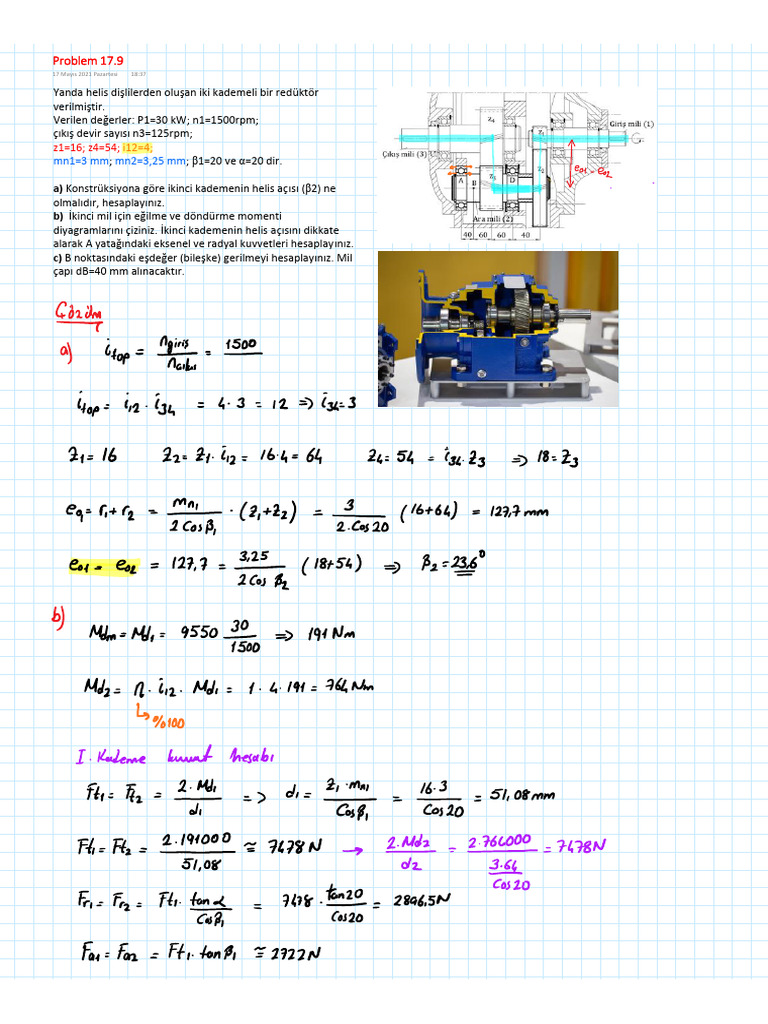 Problem 17.9
17 Mayıs 2021 Pazartesi 18:37
Yanda helis dişlilerden oluşan iki kademeli bir redüktör
verilmiştir.
Verilen değerler: P1=30 kW; n1=1500rpm;
çıkış devir sayısı n3=125rpm;
z1=16; z4=54; i12=4;
mn1=3 mm; mn2=3,25 mm; β1=20 ve α=20 dir.
a) Konstrüksiyona göre ikinci kademenin helis açısı (β2) ne
olmalıdır, hesaplayınız.
b) İkinci mil için eğilme ve döndürme momenti
diyagramlarını çiziniz. İkinci kademenin helis açısını dikkate
alarak A yatağındaki eksenel ve radyal kuvvetleri hesaplayınız.
c) B noktasındaki eşdeğer (bileşke) gerilmeyi hesaplayınız. Mil
çapı dB=40 mm alınacaktır.
z4
Giriş mili (1)
z1
Çıkış mili (3)
e01 = e02
A
B
z3
D
z2
Ara mili (2)
40 60 60 40
Çözüm
a) itop = ngiriş / nçıkış = 1500
itop = i12 . i34 = 4 . 3 = 12 => i34 = 3
z1 = 16 z2 = z1 . i12 = 16.4 = 64 z4 = 54 = i34 . z3 => 18 = z3
e01 = r1 + r2 = mn1 / 2 Cosβ1 . (z1 + z2) = 3 / 2.Cos20 (16+64) = 127,7 mm
e01 = e02 = 127,7 = 3,25 / 2 Cos β2 (18+54) => β2 = 23,6°
b) Mdm = Md1 = 9550 30 / 1500 => 191 Nm
Md2 = η . i12 . Md1 = 1 . 4 . 191 = 764 Nm
%100
I. Kademe kuvvet hesabı
Ft1 = Ft2 = 2 . Md1 / d1 => d1 = z1 . mn1 / Cosβ1 = 16.3 / Cos20 = 51,08 mm
Ft1 = Ft2 = 2.191000 / 51,08 ≅ 7478 N → 2.Md2 / d2 = 2.764000 / 3.64 / Cos20 = 7478 N
Fr1 = Fr2 = Ft1 . tanα / Cosβ1 = 7478 . tan20 / Cos20 = 2896,5 N
Fa1 = Fa2 = Ft1 . tanβ1 ≅ 2722 N